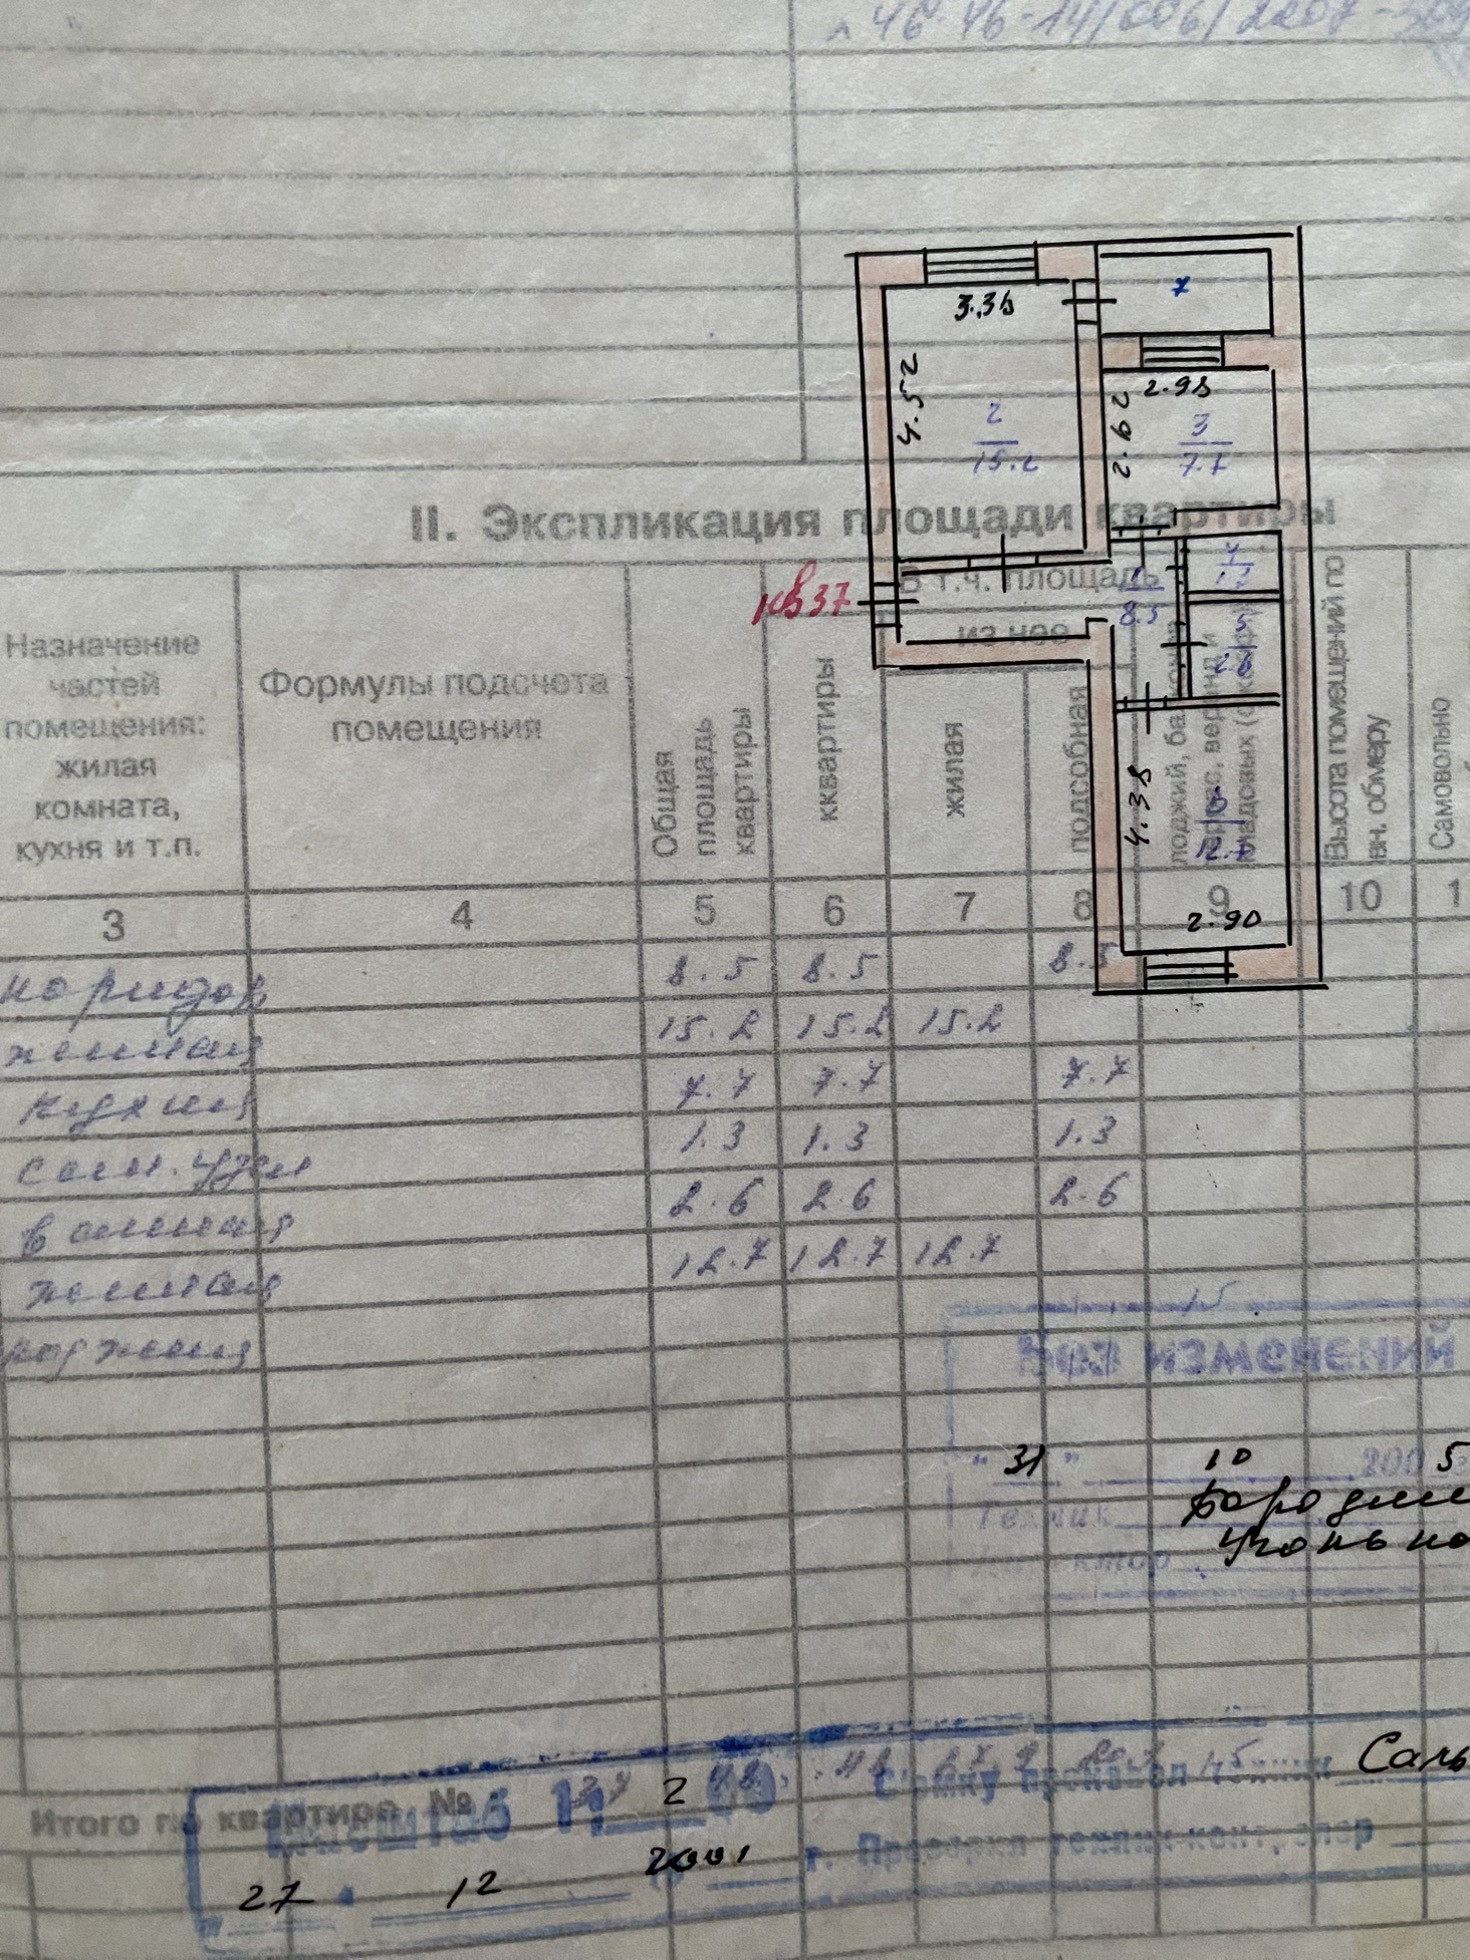 II. Экспликация площади квартиры
3.36
4.52
2
15.2
7
2.98
2.62
3
7.7
кв 37
1
8.5
4
5
2.6
4.38
12.7
2.90
Назначение частей помещения: жилая комната, кухня и т.п.
Формулы подсчета помещения
Общая площадь квартиры
В т.ч. площадь
из нее
квартиры
жилая
подсобная
Высота помещений по вн. обмеру
Самовольно
3 4 5 6 7 8 9 10 1
коридор 8.5 8.5 8.5
жилая 15.2 15.2 15.2
кухня 7.7 7.7 7.7
сан. узел 1.3 1.3 1.3
ванная 2.6 2.6 2.6
жилая 12.7 12.7 12.7
лоджия
Без изменений
"31" 10 2005
Техник
Итого по квартире №
Масштаб 1: 2 00
Съемку произвел техник
27 12 2001 г. Проверил техник-контролер